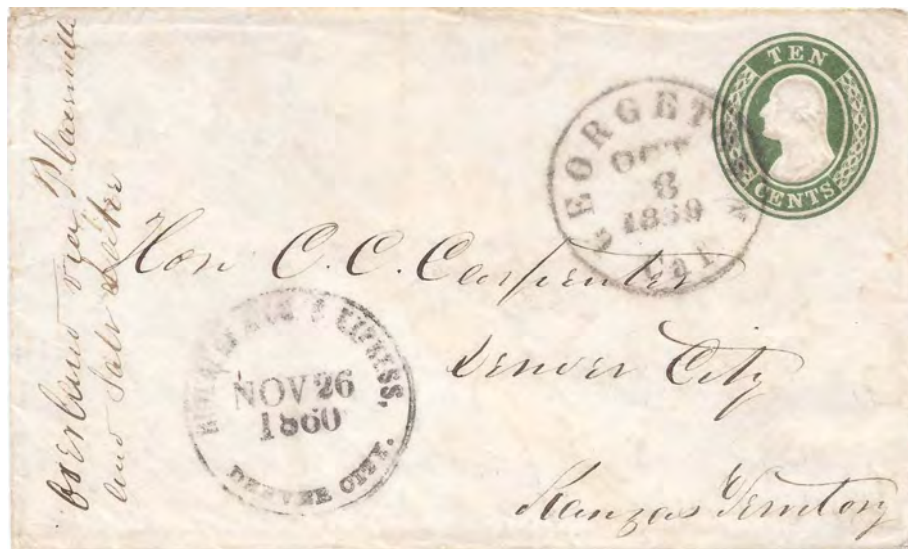 Overland via Placerville
and Salt Lake
TEN
CENTS
GEORGET
OCT
8
1859
Cal
Hon C. C. Carpenter
Denver City
Kanzas Territory
& EXPRESS,
NOV 26
1860
DENVER CITY.